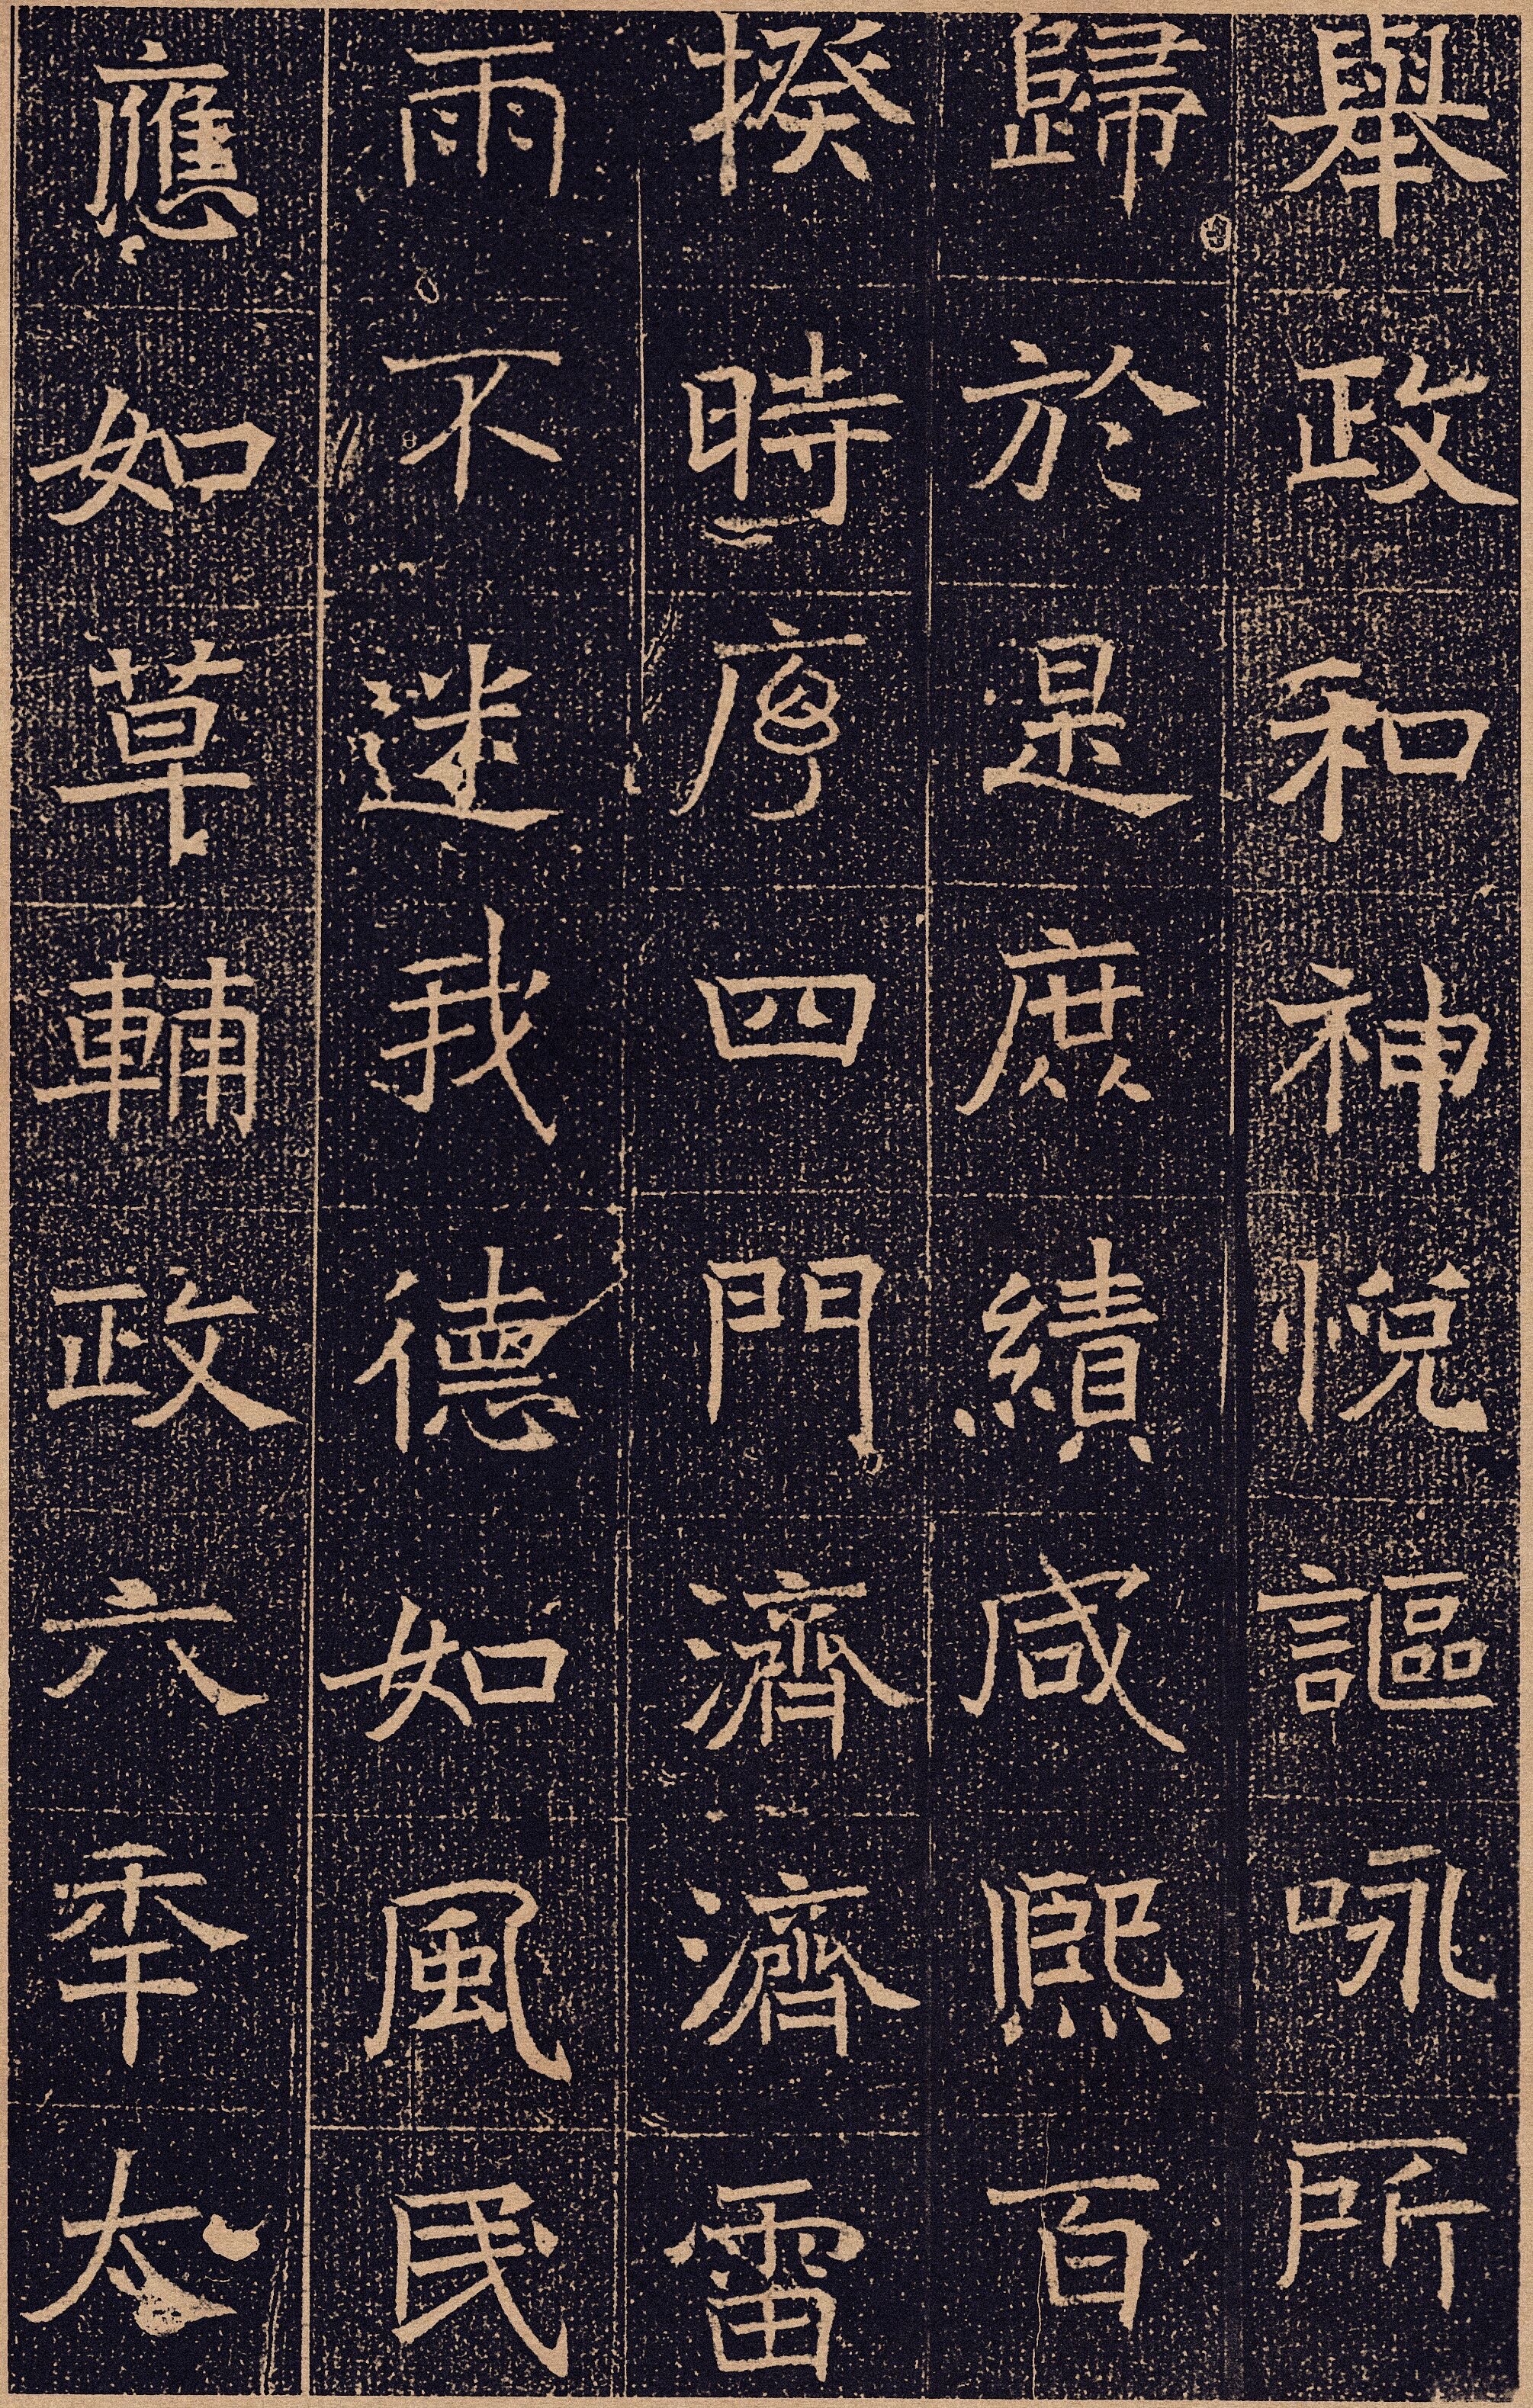 舉政和神悅謳咏所
歸於是庶績咸熙百
揆時序四門濟濟雷
雨不迷我德如風民
應如草輔政六年太